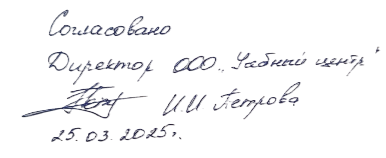 Согласовано
Директор ООО „Учебный центр"
И.И Петрова
25.03.2025г.